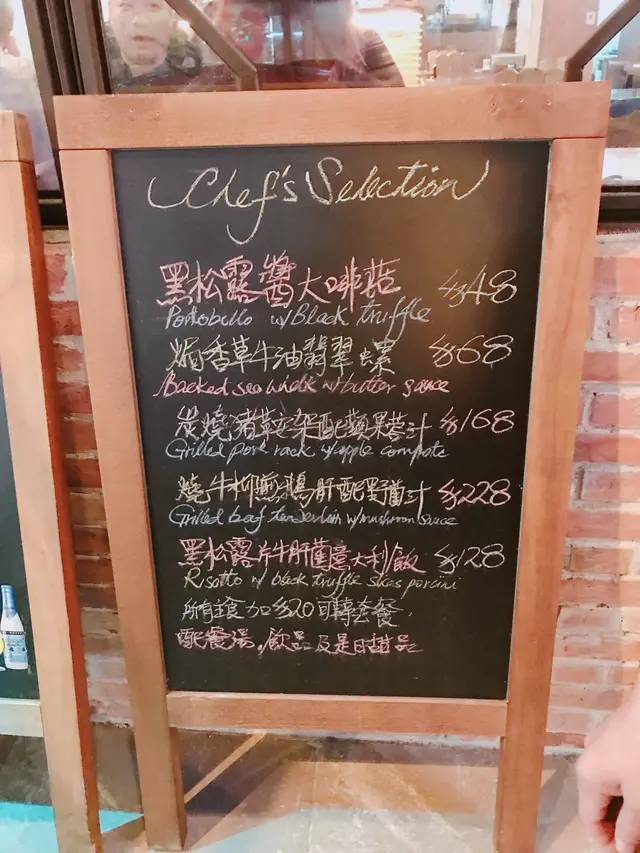 Chef's Selection
黑松露醬大啡菇 $48
Portobello w/Black truffle
焗香草牛油翡翠螺 $68
Backed sea whelk w/butter sauce
炭燒豬鞍架配蘋果蓉汁 $168
Grilled pork rack w/apple compote
燒牛柳煎鵝肝配野菌汁 $228
Grilled beef tenderloin w/mushroom sauce
黑松露片牛肝菌意大利飯 $128
Risotto w/ black truffle skes porcini
所有主食加$20可轉套餐.
配餐湯,飲品及是日甜品